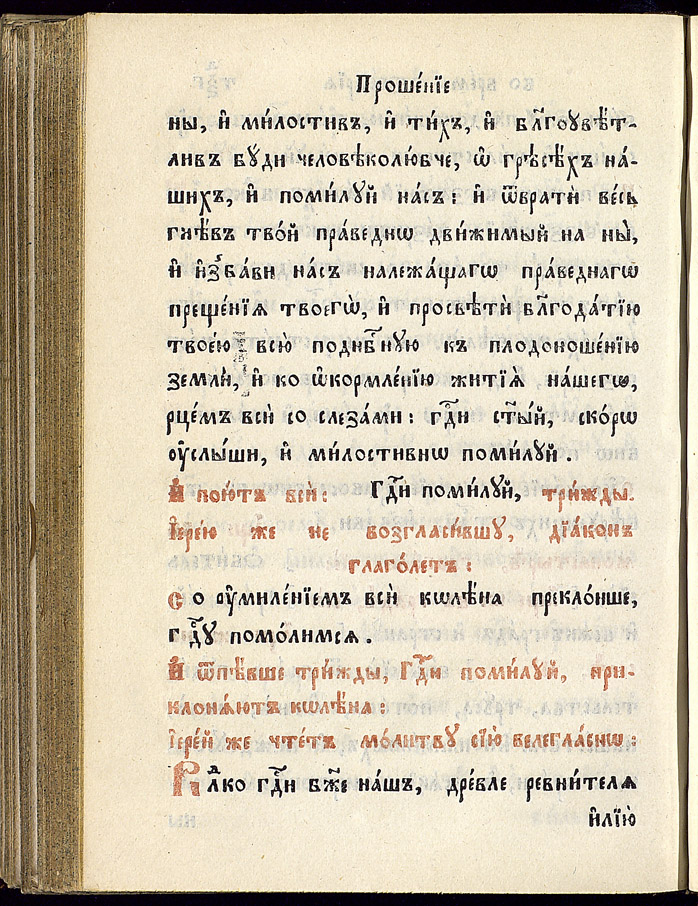 Проше́нїе
ны, и҆ ми́лостивъ, и҆ ти́хъ, и҆ бл҃гоꙋвѣ́т-
ливъ бꙋ́ди человѣколю́бче, ѡ҆ грѣсѣ́хъ на́-
шихъ, и҆ поми́лꙋй на́съ: и҆ ѿвратѝ ве́сь
гнѣ́въ тво́й пра́веднѡ дви́жимый на ны̀,
и҆ и҆зба́ви на́съ належа́щагѡ пра́веднагѡ
преще́нїѧ твоегѡ̀, и҆ просвѣтѝ бл҃года́тїю
твое́ю всю̀ поднб҃ную къ плодоноше́нїю
землѝ, и҆ ко ѡ҆кормле́нїю житїѧ̀ на́шегѡ,
рце́мъ всѝ со слеза́ми: гдⷭ҇и ст҃ы́й, ско́рѡ
ᲂу҆слы́ши, и҆ ми́лостивнѡ поми́лꙋй.
И҆ пою́тъ всѝ: Гдⷭ҇и поми́лꙋй, три́жды.
І҆ере́ю же не возгласи́вшꙋ, дїа́конъ
глаго́летъ:
Со ᲂу҆миле́нїемъ всѝ кѡлѣ́на прекло́нше,
гдⷭ҇ꙋ помо́лимсѧ.
И҆ ѿпѣ́вше три́жды, Гдⷭ҇и поми́лꙋй, при-
клонѧ́ютъ кѡлѣ́на:
І҆ере́й же чте́тъ мл҃итвꙋ сїю̀ велегла́снѡ:
Влⷣко гдⷭ҇и бж҃е на́шъ, дре́вле ревни́телѧ
и҆лїю̀